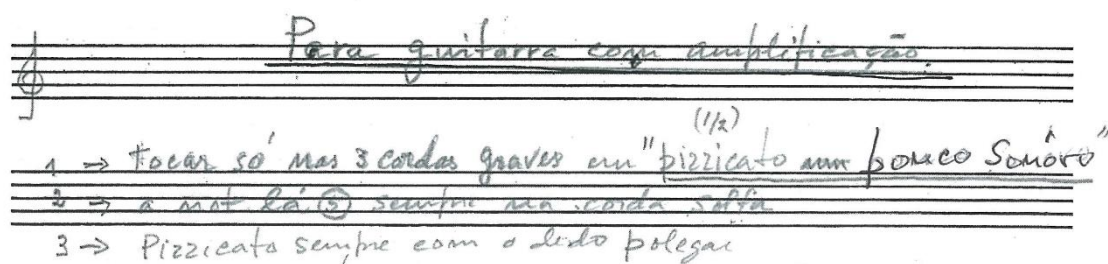 Para guitarra com amplificação.
(1/2)
1 → tocar só nas 3 cordas graves em "pizzicato um pouco Sonôro"
2 → a not lá ⑤ sempre na corda solta
3 → Pizzicato sempre com o dedo polegar